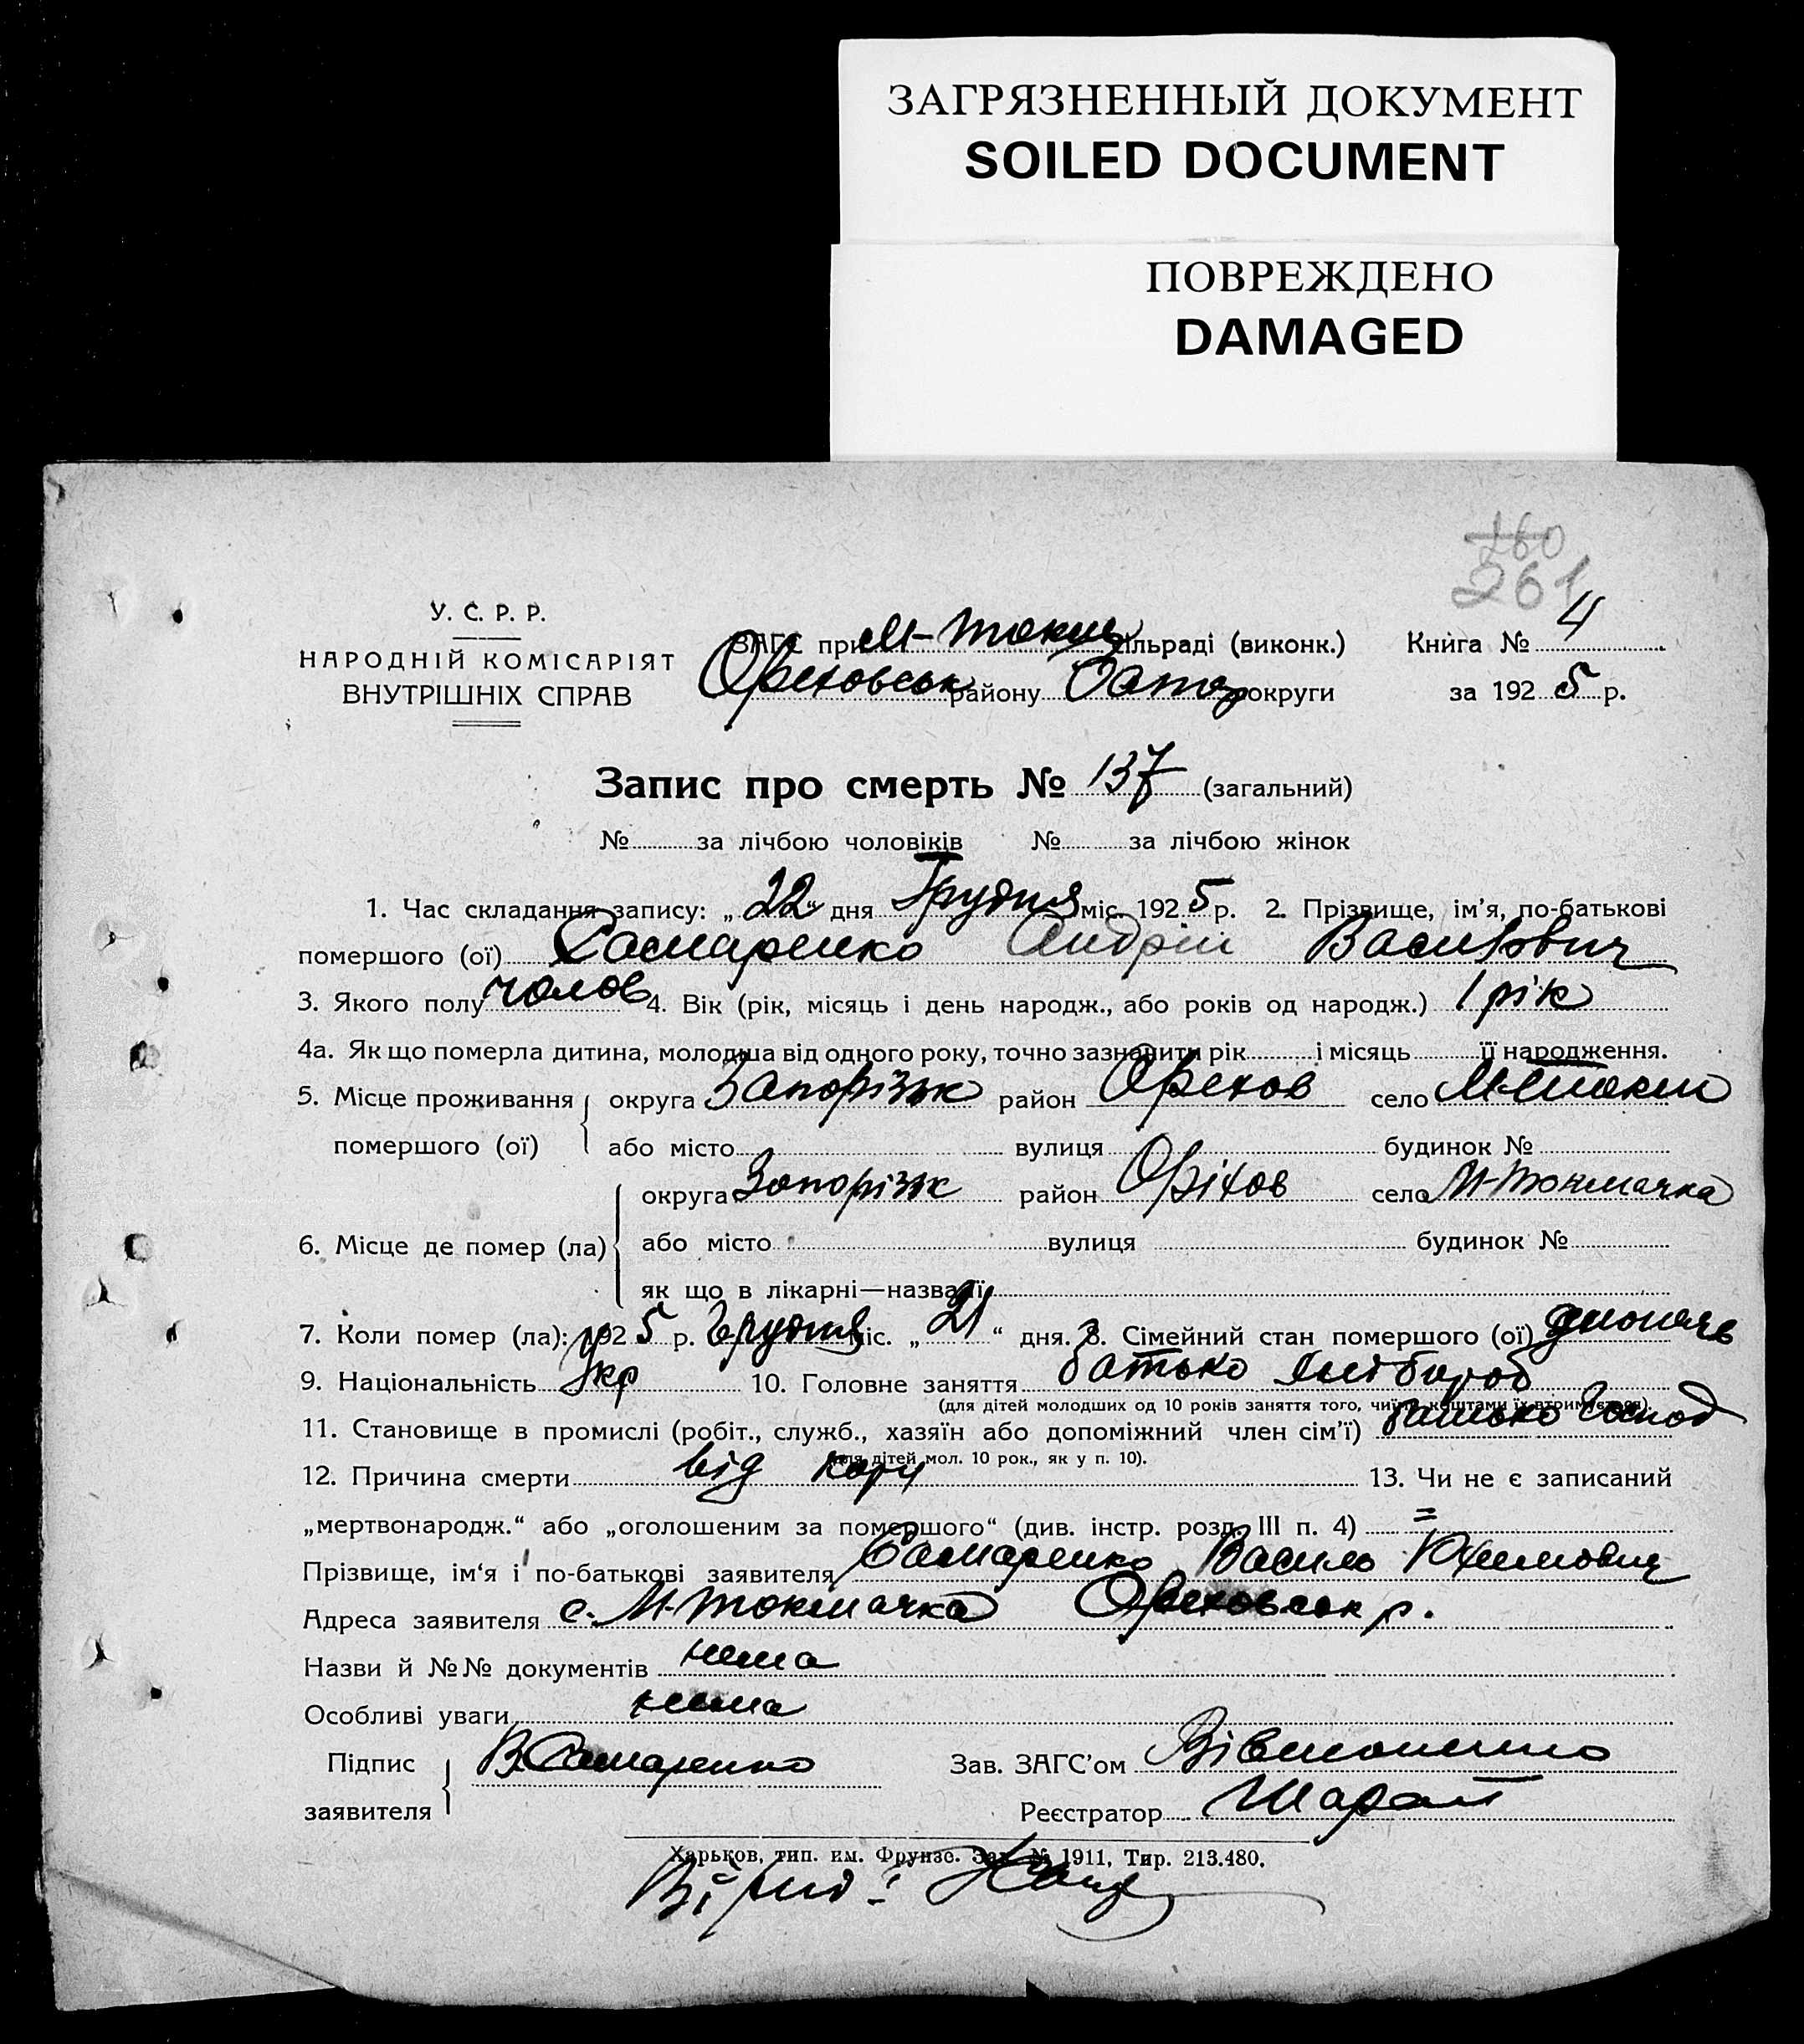 ЗАГРЯЗНЕННЫЙ ДОКУМЕНТ
SOILED DOCUMENT
ПОВРЕЖДЕНО
DAMAGED
260
261
У. С. Р. Р.
НАРОДНІЙ КОМІСАРІЯТ
ВНУТРІШНІХ СПРАВ
ЗАГС при М-Токма сільраді (виконк.) Книга № 4
Ореховськ району округи за 1925 р.
Запис про смерть № 137 (загальний)
№ за лічбою чоловіків № за лічбою жінок
1. Час складання запису: „22“ дня Грудня міс. 1925 р. 2. Прізвище, ім’я, по-батькові
помершого (ої) Самаренко Андрій Васильович
3. Якого полу чолов 4. Вік (рік, місяць і день народж., або років од народж.) 1 рік
4а. Як що померла дитина, молодша від одного року, точно зазначити рік і місяць її народження.
5. Місце проживання округа Запоріжж район Орехов село М-Токм
помершого (ої) або місто вулиця будинок №
округа Запоріжж район Оріхов село М-Токмачка
6. Місце де помер (ла) або місто вулиця будинок №
як що в лікарні—назва її
7. Коли помер (ла): 1925 р. Грудня міс. „21“ дня. 8. Сімейний стан помершого (ої)
9. Національність Укр 10. Головне заняття батько хлібороб
(для дітей молодших од 10 років заняття того, чиїми коштами їх втримується).
11. Становище в промислі (робіт., служб., хазяїн або допоміжний член сім’ї) батько Господ
(для дітей мол. 10 рок., як у п. 10).
12. Причина смерти від кору 13. Чи не є записаний
„мертвонародж.“ або „оголошеним за помершого“ (див. інстр. розд. III п. 4) =
Прізвище, ім‘я і по-батькові заявителя Самаренко Василь
Адреса заявителя с. М-Токмачка Ореховськ р.
Назви й №№ документів нема
Особливі уваги нема
Підпис В. Самаренко Зав. ЗАГС’ом
заявителя Реєстратор
Харьков, тип. им. Фрунзе. Зак. № 1911, Тир. 213.480.